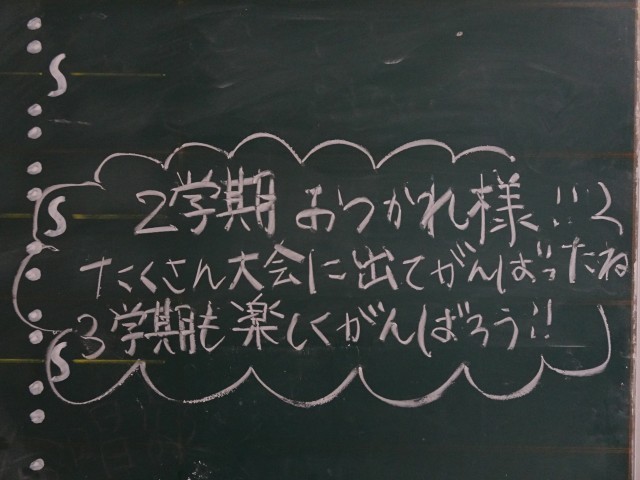 S
S
2学期 おつかれ様!!
たくさん大会に出てがんばったね
3学期も楽しくがんばろう!!
S